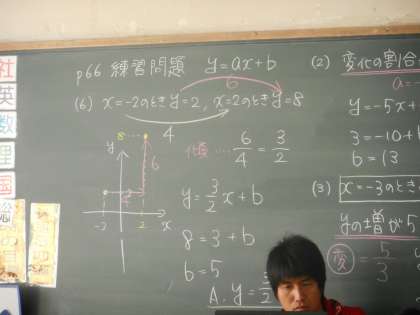 p66 練習問題 y=ax+b
6
(6) x=-2のときy=2, x=2のときy=8
4
8
y
6
2
4
-2
2
x
6/4 = 3/2
y=3/2x+b
8=3+b
b=5
A. y=
(2) 変化の割合
y=-5x+
3=-10+b
b=13
(3) x=-3のとき
yの増が5
変 = 5/3
社
英
数
理
国